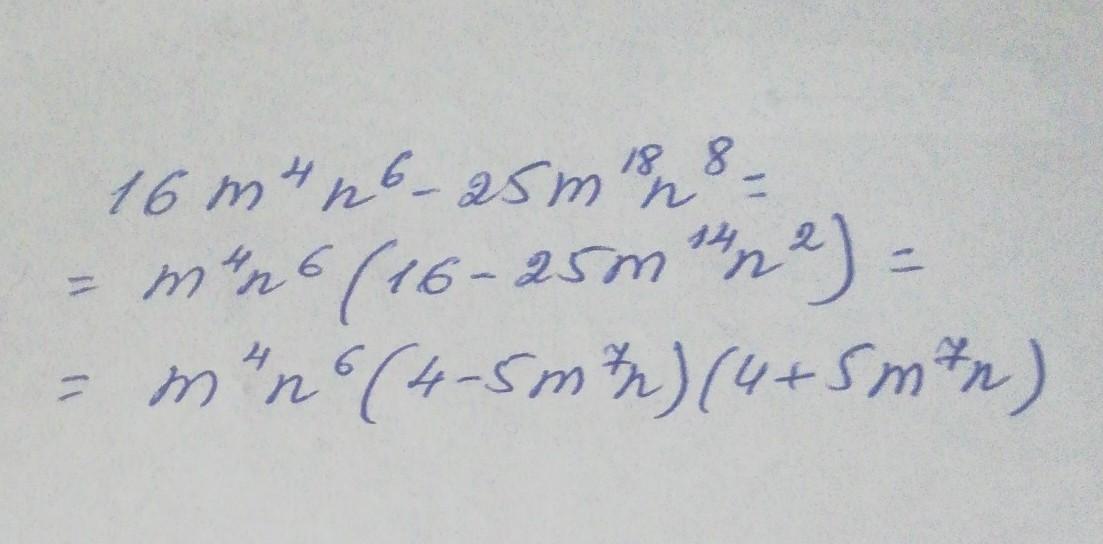 16 m⁴n⁶ - 25m¹⁸n⁸ =
= m⁴n⁶ (16 - 25m¹⁴n²) =
= m⁴n⁶ (4 - 5m⁷n)(4 + 5m⁷n)